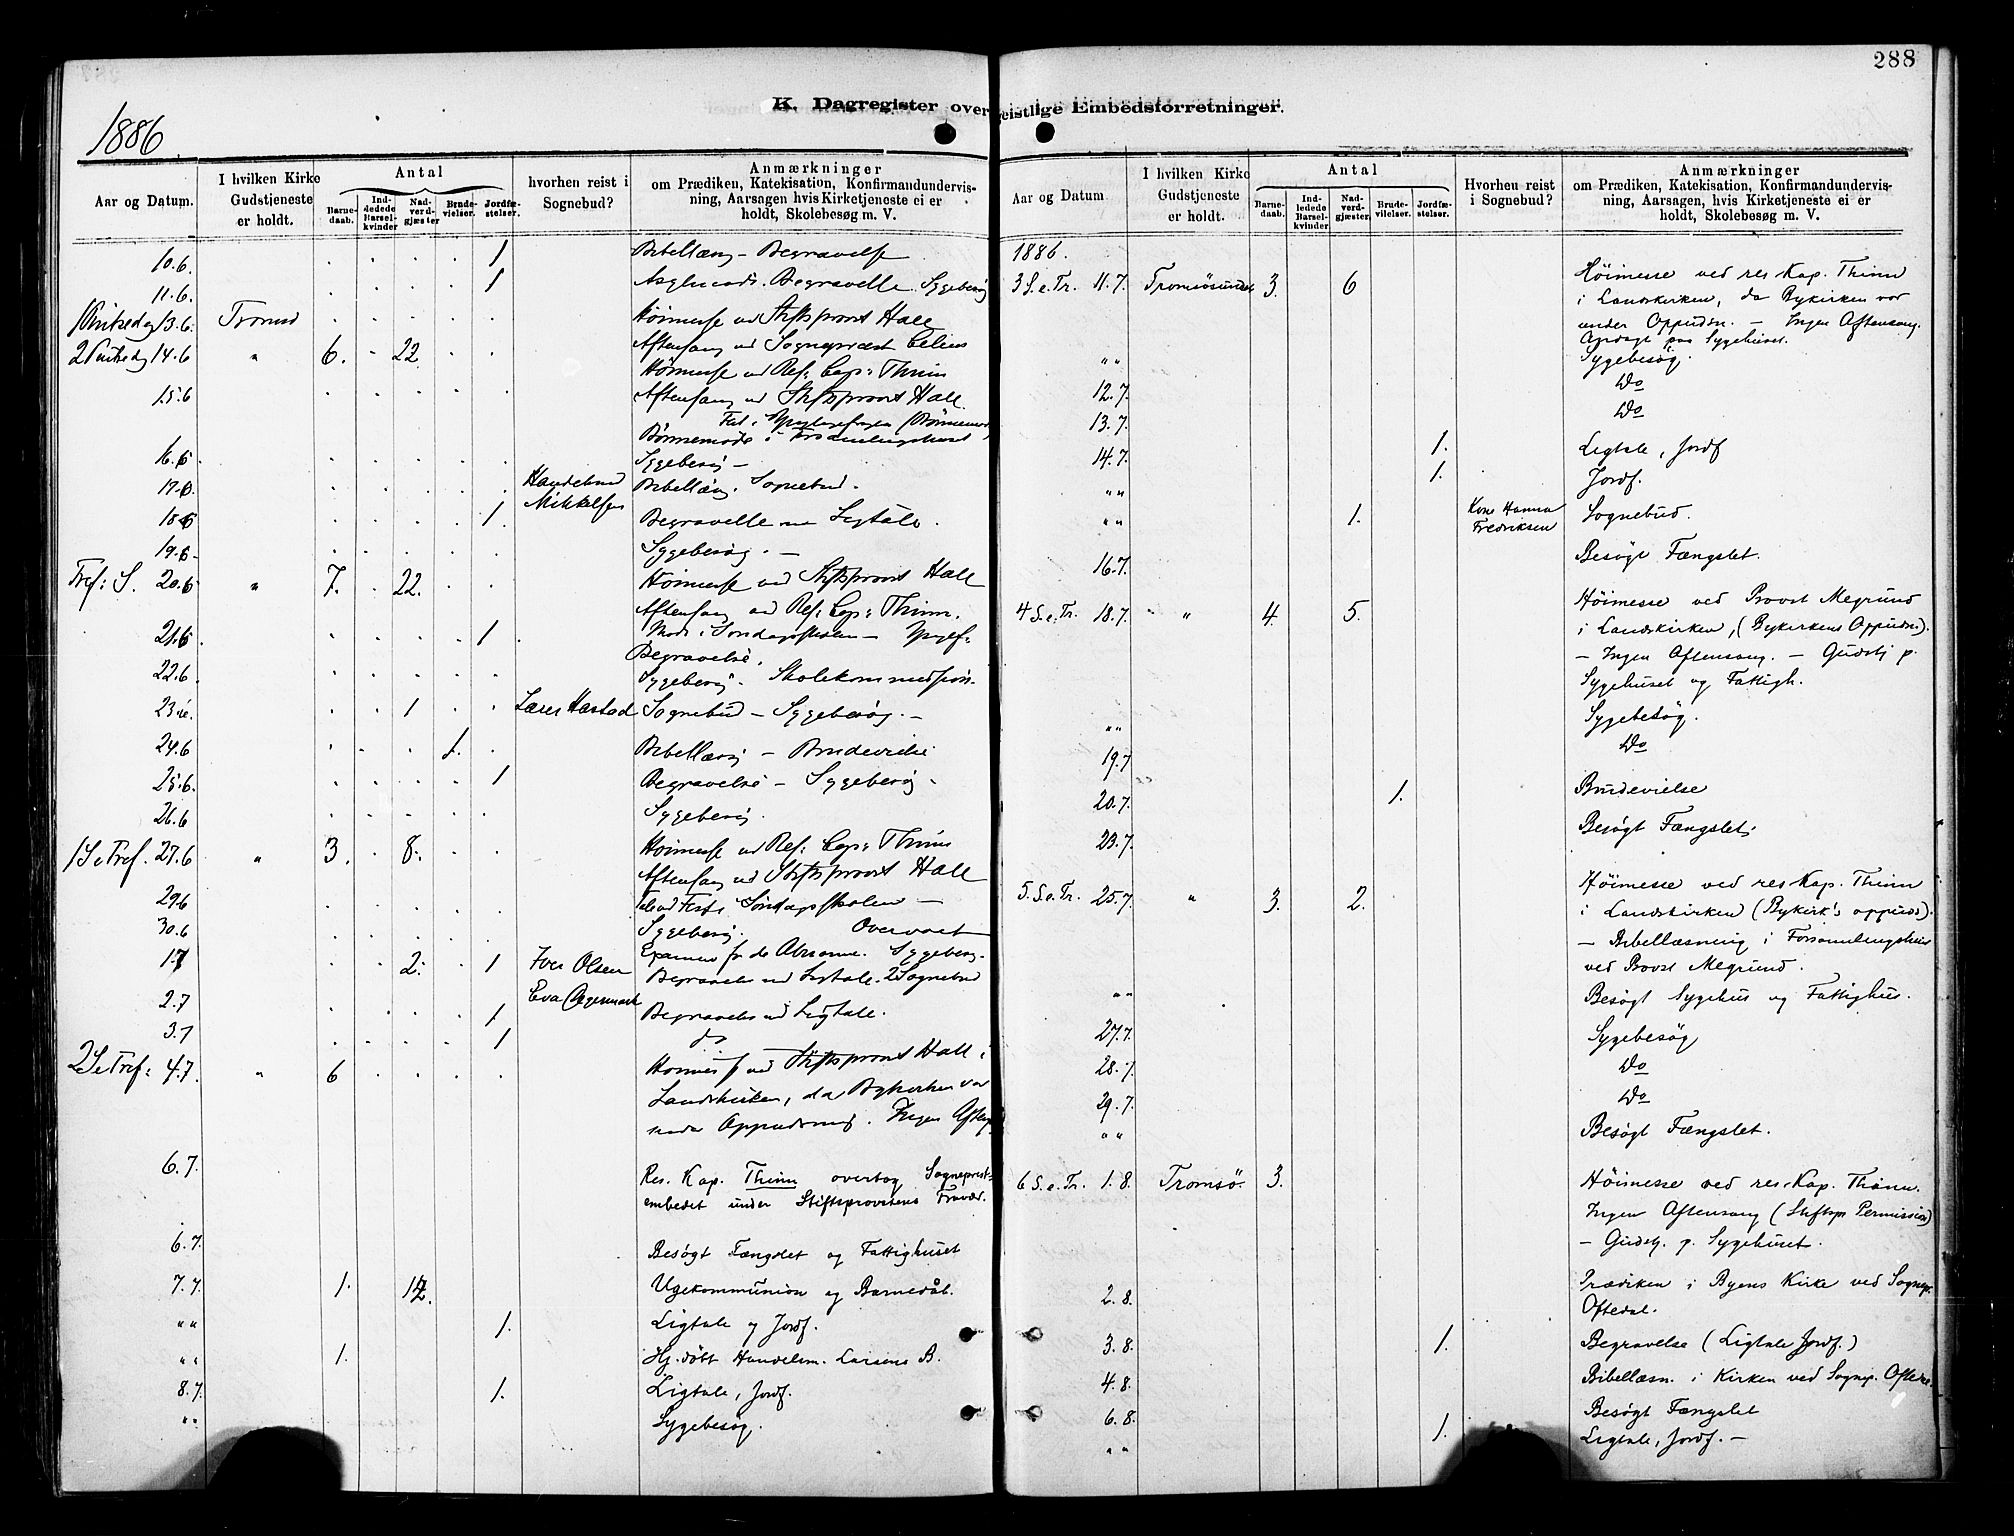 288
K. Dagregister over geistlige Embedsforretninger.
1886
Aar og Datum.
I hvilken Kirke Gudstjeneste er holdt.
Antal
Barnedaab.
Inddledede Barselkvinder
Nadverdgjæster
Brudevielser.
Jordfæstelser.
hvorhen reist i Sognebud?
Anmærkninger
om Prædiken, Katekisation, Konfirmandundervisning, Aarsagen hvis Kirketjeneste ei er holdt, Skolebesøg m. V.
10.6. 1 Bibellæsn – Begravelse
11.6. 1 Begravelse. Sygebesøg
13.6. Tromsø Høimesse ved Stiftsprovst Hall
Aftensang ved Sogneprest
14.6 " 6. 22 Høimesse ved Res: Cap: Thinn
Aftensang ved Stiftsprovst Hall
15.6
16.6 Sygebesøg –
17.6. Bibellæsn. Sognebud.
Mikkelsen
18.6 1. Begravelse m Ligtale.
19.6 Sygebesøg. –
Tref: S. 20.6 " 7. 22. Høimesse ved Stiftsprovst Hall
Aftensang ved Res: Cap: Thinn.
21.6 1 Møde i Søndagsskolen –
Begravelse.
22.6. Sygebesøg. Skolekommission.
23.6. 1 Sognebud – Sygebesøg. –
24.6 1. Bibellæsn – Brudevielse
25.6. 1 Begravelse – Sygebesøg.
26.6 Sygebesøg.
1 S e Tref. 27.6 " 3. 8. Høimesse ved Res: Cap: Thinn
Aftensang ved Stiftsprovst Hall
29.6 Søndagsskolen –
30.6 Sygebesøg. Overvært
1.7 2. 1 Iver Olsen Examen for de Sygebesøg.
Eva Begravelse ved Ligtale. 2 Sognebud
2.7 1 Begravelse ved Ligtale.
3.7 1 do
2 S e Tref: 4.7. " 6 Høimesse ved Stiftsprovst Hall i
Landskirken, da Bykirken var
under Oppudsning. Ingen Aftens
6.7. Res. Kap. Thinn overtog Sogneprest-
embedet under Stiftsprovstens Fravær.
6.7. Besøgt Fængslet og Fattighuset
7.7. 1. 12. Ugekommunion og Barnedåb.
" " 1. Ligtale og Jordf.
" " 1. Hj. døbt Handelsm. Larsens B.
8.7. 1. Ligtale, Jordf.
" " Sygebesøg.
Aar og Datum
I hvilken Kirke Gudstjeneste er holdt.
Antal
Barnedaab.
Inddledede Barselkvinder
Nadverdgjæster
Brudevielser.
Jordfæstelser.
Hvorhen reist i Sognebud?
Anmærkninger
om Prædiken, Katekisation, Konfirmandundervisning, Aarsagen, hvis Kirketjeneste ei er holdt, Skolebesøg m. V.
1886.
3 S. e. Tr. 11.7. Tromsøsundet 3. 6 Høimesse ved res Kap. Thinn
i Landskirken, da Bykirken var
under Oppudsn. – Ingen Aftensang.
paa Sygehuset.
" " Sygebesøg.
12.7. Do
13.7. Do
14.7. 1. Ligtale, Jordf
" " 1. Jordf.
" " 1. Kone Hanna Fredriksen Sognebud.
16.7. Besøgt Fængslet.
4 S. e. Tr. 18.7. " 4. 5. Høimesse ved Provst Megrund
i Landskirken, (Bykirkens Oppudsn.).
– Ingen Aftensang. – Gudstj p.
Sygehuset og Fattigh.
" " Sygebesøg.
19.7 Do
20.7. 1. Brudevielse
23.7. Besøgt Fængslet.
5. S. e. Tr. 25.7. " 3. 2. Høimesse ved res Kap. Thinn
i Landskirken (Bykirk's oppuds).
– Bibellæsning i Forsamlingshuset
ved Provst Megrund.
" " Besøgt Sygehus og Fattighus.
27.7. Sygebesøg
28.7. Do
29.7. Do
" " Besøgt Fængslet.
6 S. e. Tr. 1.8. Tromsø. 3. Høimesse ved res Kap. Thinn.
Ingen Aftensang (Stiftsp Permission)
– Gudstj. p. Sygehuset.
2.8. Prædiken i Byens Kirke ved Sognep.
Oftedal.
3.8. 1. Begravelse (Ligtale Jordf.)
4.8. Bibellæsn. i Kirken ved Sognep. Oftedal.
6.8. Besøgt Fængslet
" " 1. Ligtale, Jordf. –